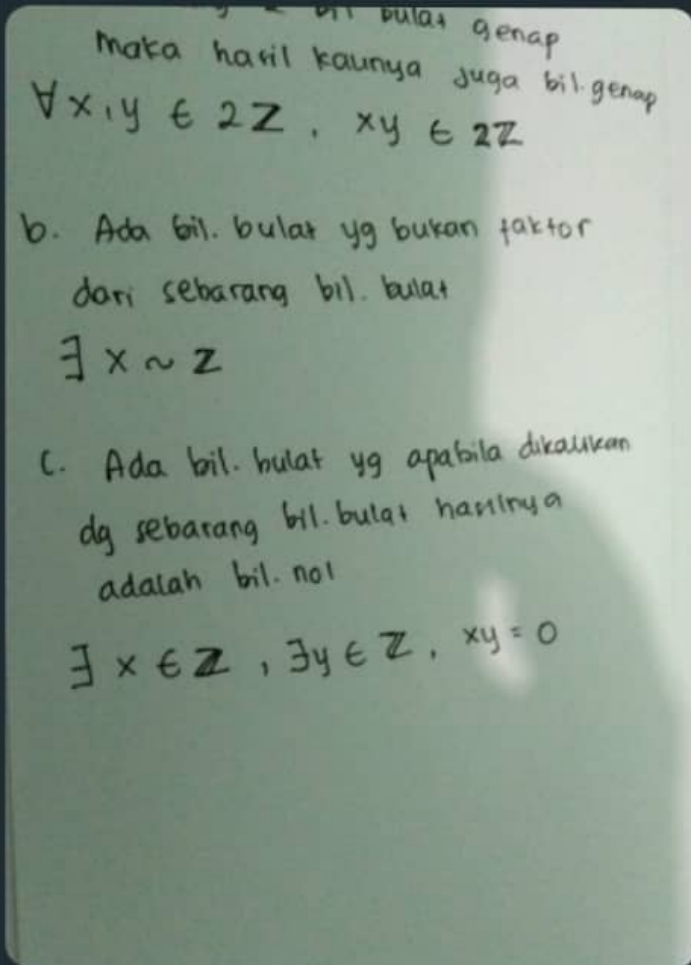 bulat genap
maka hasil kalinya juga bil. genap
∀x,y ∈ 2Z, xy ∈ 2Z
b. Ada bil. bulat yg bukan faktor
dari sebarang bil. bulat
∃ x ~ Z
c. Ada bil. bulat yg apabila dikalikan
dg sebarang bil. bulat hasilnya
adalah bil. nol
∃ x ∈ Z, ∃y ∈ Z, xy = 0